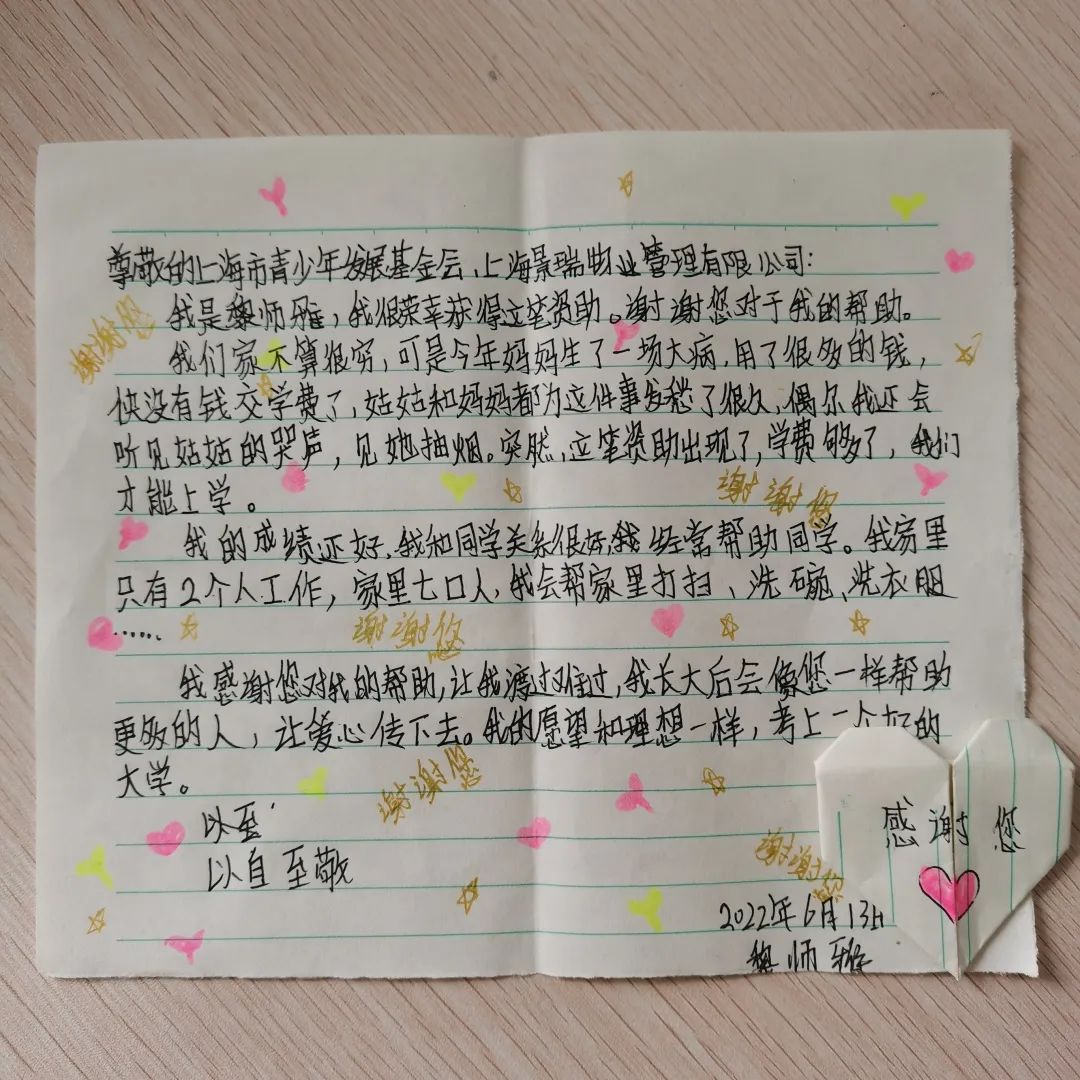 尊敬的上海市青少年发展基金会、上海景瑞物业管理有限公司:
我是黎师雅，我很荣幸获得这笔资助。谢谢您对于我的帮助。
谢谢您
我们家不算很穷，可是今年妈妈生了一场大病，用了很多的钱，
快没有钱交学费了，姑姑和妈妈都为这件事发愁了很久，偶尔我还会
听见姑姑的哭声，见她抽烟。突然，这笔资助出现了，学费够了，我们
才能上学。
谢谢您
我的成绩还好，我和同学关系很好，我经常帮助同学。我家里
只有2个人工作，家里七口人，我会帮家里打扫、洗碗、洗衣服
……
谢谢您
我感谢您对我的帮助，让我渡过难过，我长大后会像您一样帮助
更多的人，让爱心传下去。我的愿望和理想一样，考上一个好的
大学。
谢谢您
以至
以自至敬
谢谢您
感谢您
2022年6月13日
黎师雅